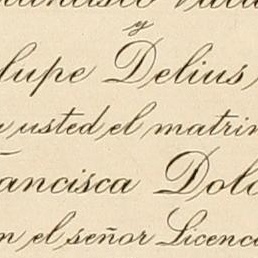 ancisco Vala
y
lupe Delius
a usted el matrim
ancisca Dolo
n el señor Licenci